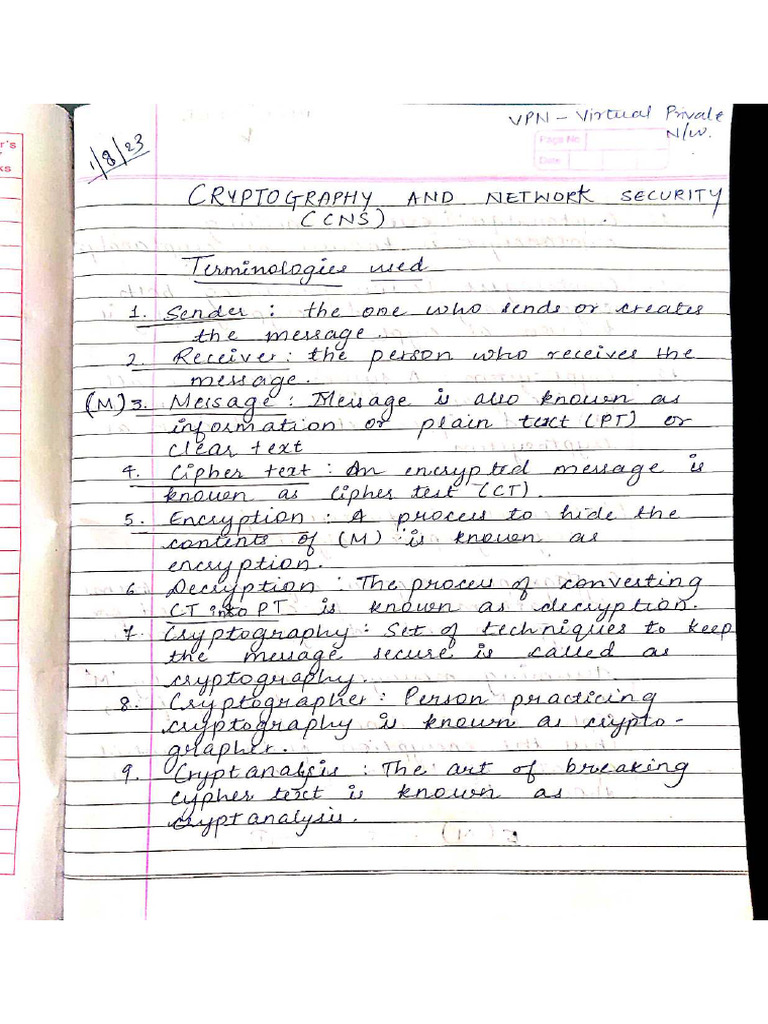 VPN - Virtual Private
N/W.
Page No.
Date
1/8/23
CRYPTOGRAPHY AND NETWORK SECURITY
(CNS)
Terminologies used
1. Sender : the one who sends or creates
the message.
2. Receiver : the person who receives the
message.
(M) 3. Message : Message is also known as
information or plain text (PT) or
clear text
4. Cipher text : An encrypted message is
known as cipher test (CT).
5. Encryption : A process to hide the
contents of (M) is known as
encryption.
6. Decryption : The process of converting
CT into PT is known as decryption.
7. Cryptography : Set of techniques to keep
the message secure is called as
cryptography.
8. Cryptographer : Person practicing
cryptography is known as crypto-
grapher.
9. Cryptanalsis : The art of breaking
cypher text is known as
cryptanalysis.